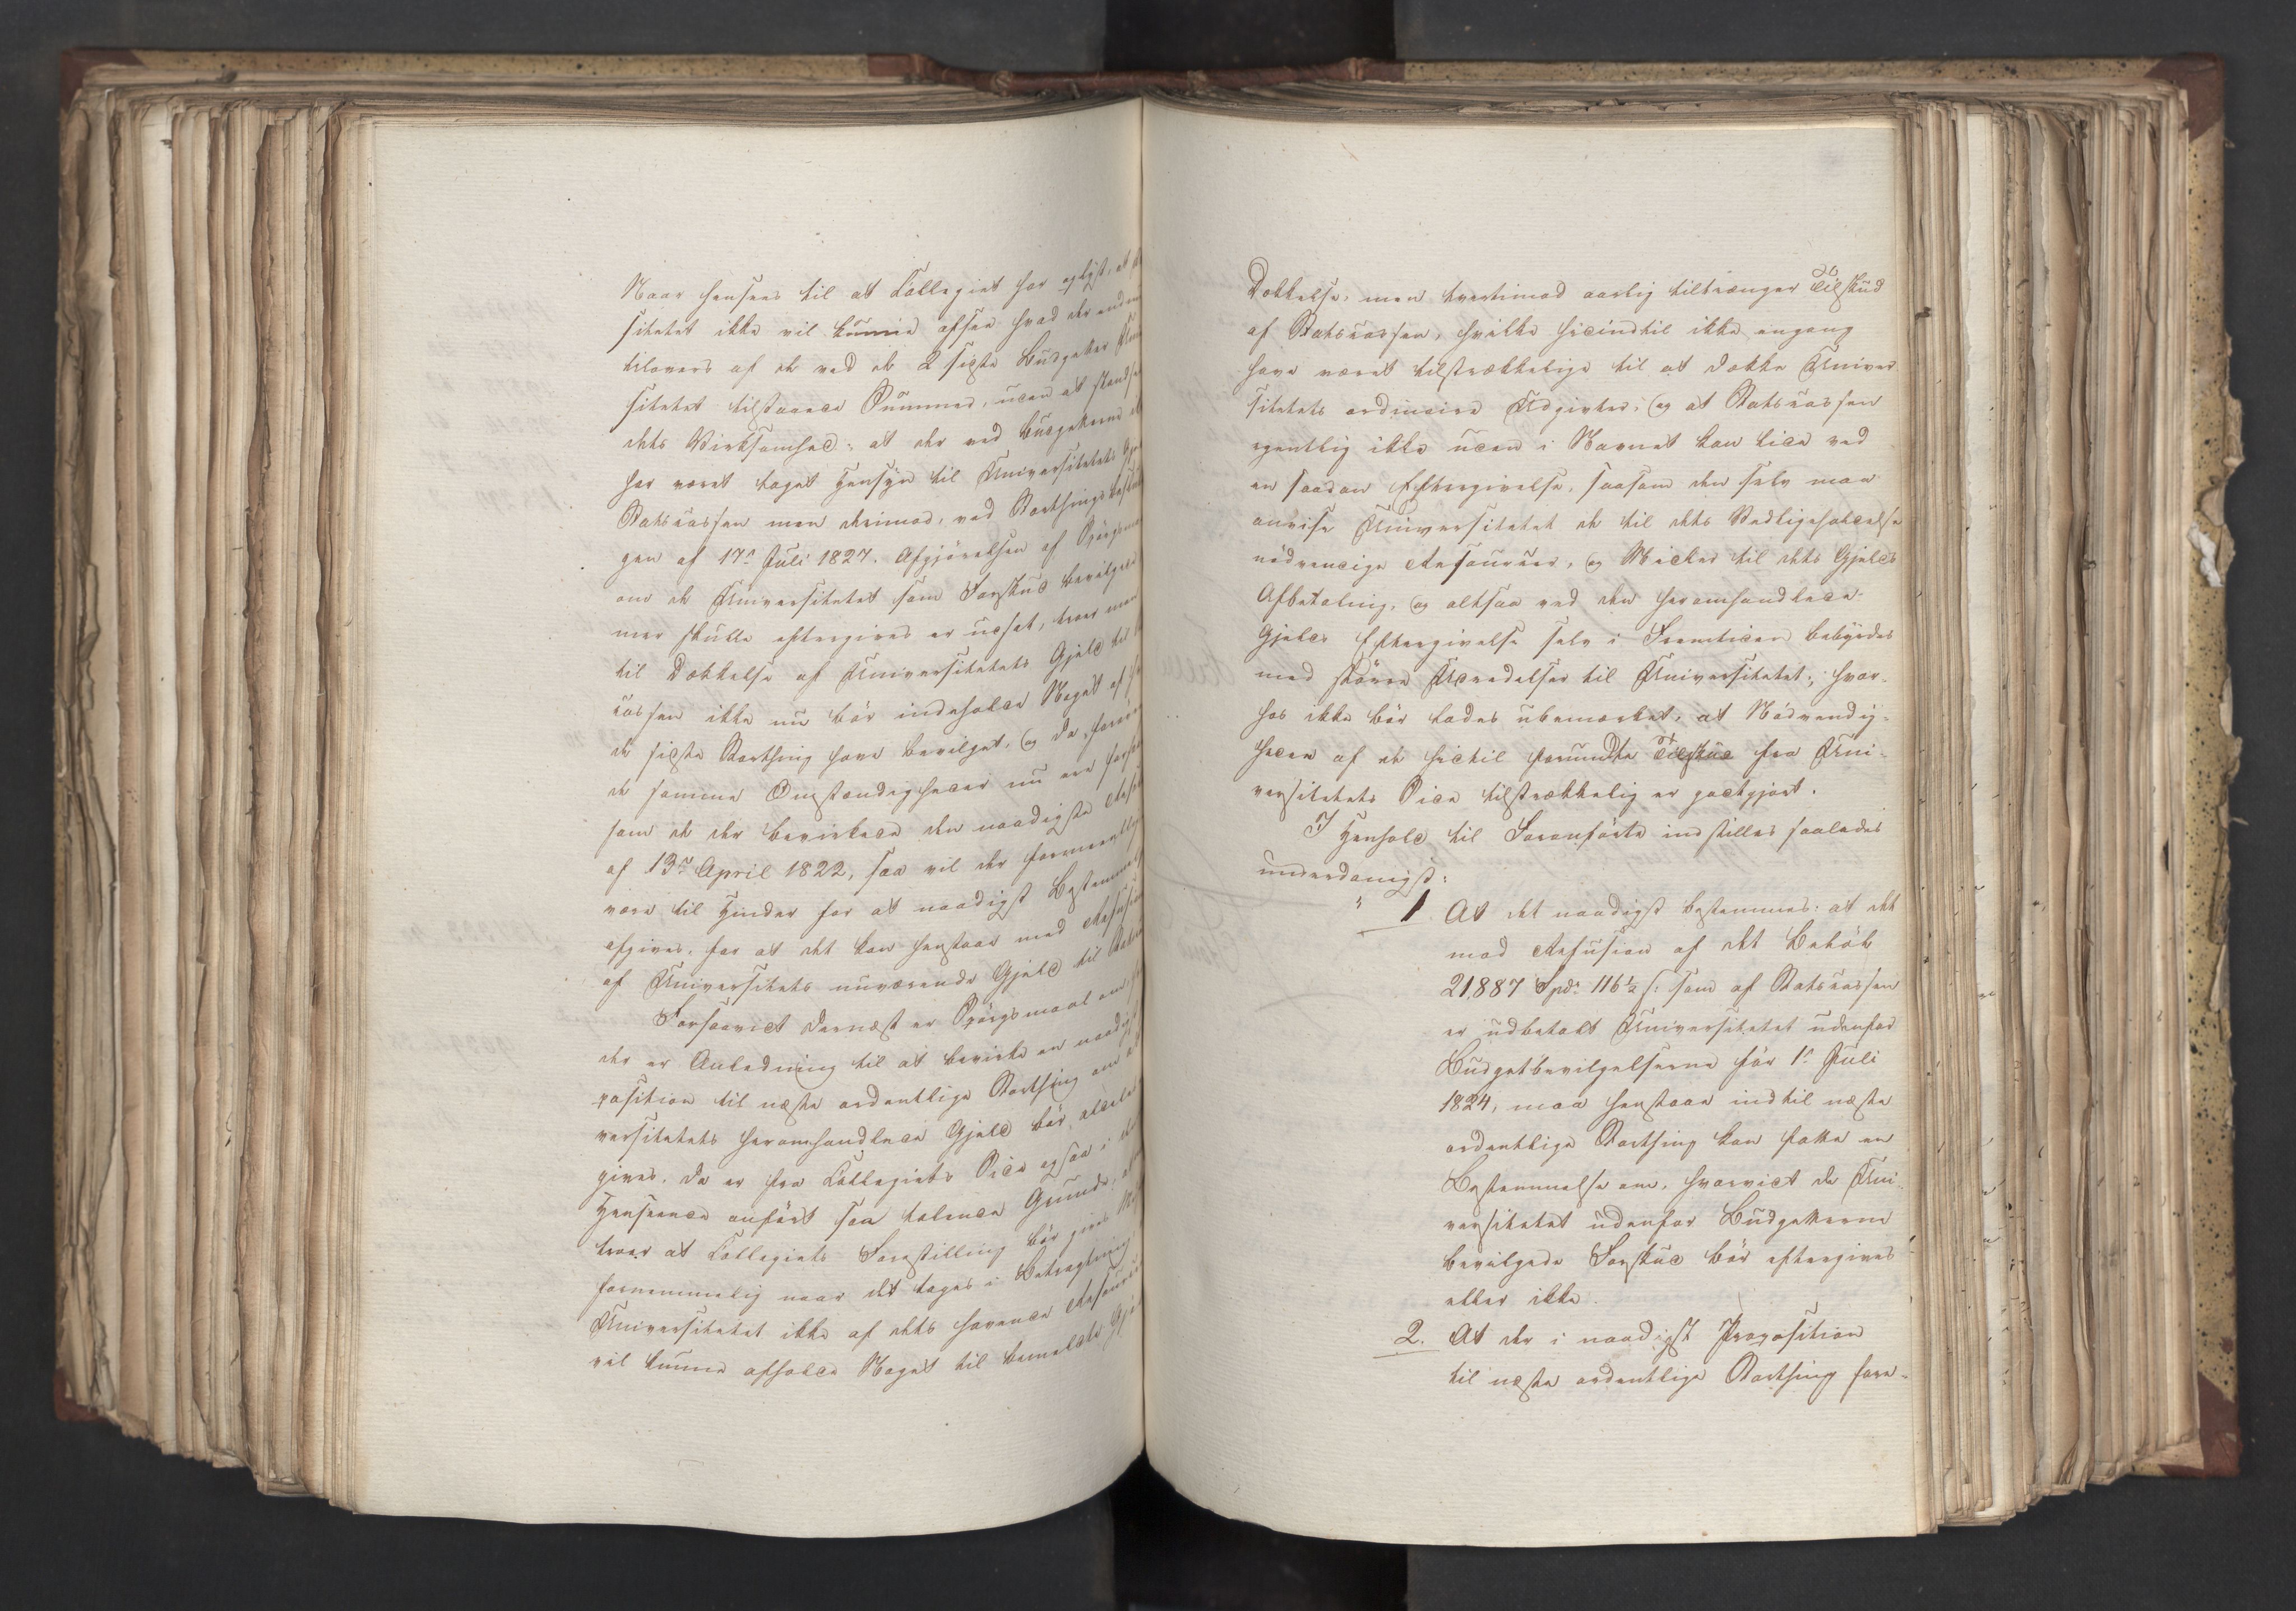 Naar hensees til at Collegiet har oplyst, at
sitetet ikke vil kunne afsee hvad der endnu
tilovers af de ved de 2 sidste Budgetter
sitetet tilstaaede Summer, uden at standse
dets Virksomhed; at der ved Budgetterne
har været taget Hensyn til Universitetets
Statskassen men derimod, ved Storthings
gen af 17de Juli 1827. Afgjørelsen af Spørgsm
om de Universitetet som Forskud bevilgede
mer skulle eftergives er udsat, troer man
til Dækkelse af Universitetets Gjeld til
kassen ikke nu bør indeholdes Noget af
de sidste Storthing have bevilget, og da
de samme Omstændigheder nu ere
som de der bevirkede den naadigste
af 13de April 1822, saa vil der formeentlig
være til Hinder for at naadigst Bestemmelse
afgives, for at det kan henstaae med Refusion
af Universitets nuværende Gjeld til
Forsaavidt dernæst er Spørgsmaal om
der er Anledning til at bevirke en naadigst
position til næste ordentlige Storthing om
versitetets heromhandlede Gjeld bør
gives, da er fra Collegiets Side ogsaa i
Henseende anført saa talende Grunde,
troer at Collegiets Forestilling bør gives
fornemmelig naar det tages i Betragtning
Universitetet ikke af dets havende
vil kunne afholde Noget til bemeldte
Dækkelse, men tvertimod aarlig tiltrænger Tilskud
af Statskassen, hvilke hidindtil ikke engang
have været tilstrækkelige til at dække Univer
sitetets ordinaire Udgivter; og at Statskassen
egentlig ikke uden i Navnet kan lide ved
en saadan Eftergivelse, saasom den selv maa
anvise Universitetet de til dets Vedligeholdelse
nødvendige Ressourcer, og Midler til dets Gjelds
Afbetaling, og altsaa ved den heromhandlede
Gjelds Eftergivelse selv i Fremtiden bebyrdes
med større Udredelser til Universitetet; hvor-
hos ikke bør lades ubemærket, at Nødvendig-
heden af de hidtil forundte Tilskud fra Uni-
versitetets Side tilstrækkelig er godtgjort.
I Henhold til Foranførte indstilles saaledes
underdanigst:
" 1 At det naadigst bestemmes: at det
med Refusion af det Beløb
21,887 Spd. 116½ s: som af Statskassen
er udbetalt Universitetet udenfor
Budgetbevilgelserne før 1ste Juli
1824, maa henstaae indtil næste
ordentlige Storthing kan fatte en
Bestemmelse om, hvorvidt de Uni-
versitetet udenfor Budgetterne
bevilgede Forskud bør eftergives
eller ikke.
2. At der i naadigst Proposition
til næste ordentlige Storthing fore-